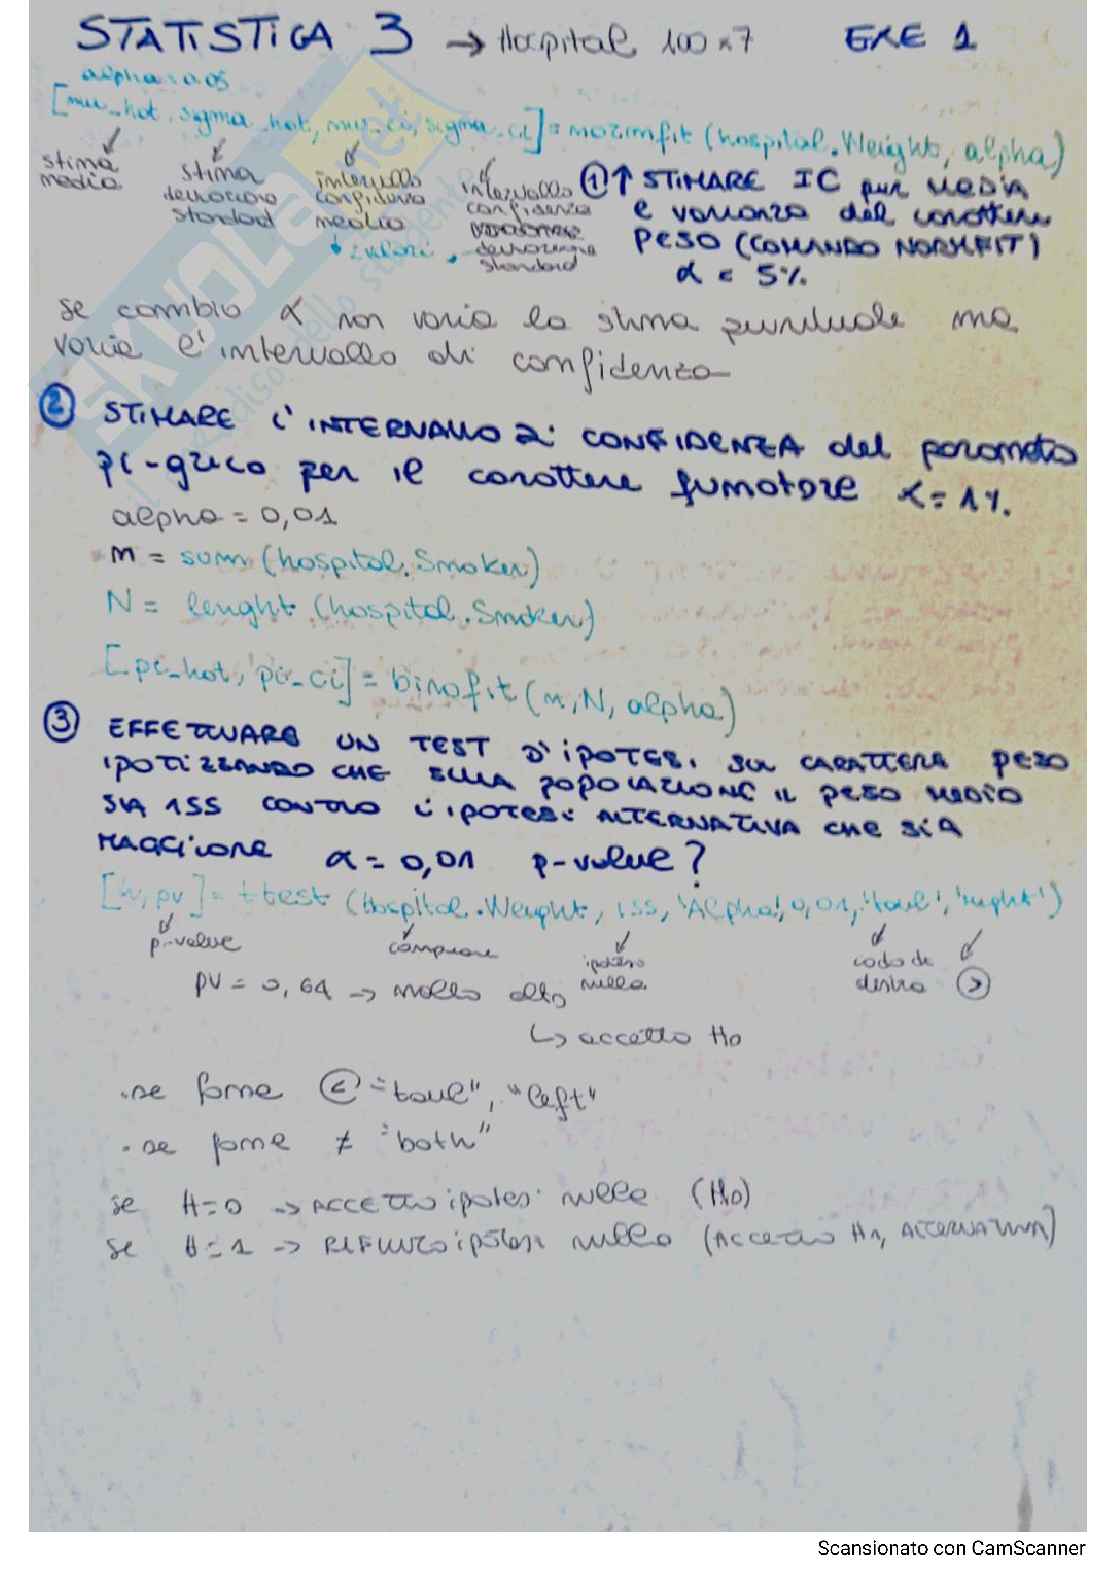 STATISTICA 3 → Hospital 100x7 EXE 1
alpha = 0.05
[mu_hat, sigma_hat, mu_ci, sigma_ci] = normfit (hospital.Weight, alpha)
stima media
stima deviazione standard
intervallo confidenza media
↓ 2 valori
intervallo confidenza deviazione standard
① ↑ STIMARE IC per MEDIA
e varianza del carattere
PESO (COMANDO NORMFIT)
α = 5%
se cambio α non varia la stima puntuale ma
varia l'intervallo di confidenza
② STIMARE L'INTERVALLO DI CONFIDENZA del parametro
pi-greco per il carattere fumatore α = 1%.
alpha = 0,01
m = sum (hospital.Smoker)
N = lenght (hospital.Smoker)
[pi_hat, pi_ci] = binofit (m, N, alpha)
③ EFFETTUARE UN TEST D'IPOTESI SUL CARATTERE PESO
IPOTIZZANDO CHE SULLA POPOLAZIONE IL PESO MEDIO
SIA 155 CONTRO L'IPOTESI ALTERNATIVA CHE SIA
MAGGIORE α = 0,01 p-value?
[h, pv] = ttest (Hospital.Weight, 155, 'Alpha', 0,01, 'tail', 'right')
p-value
campione
ipotesi nulla
coda di destra
>
pv = 0,64 → molto alto
↳ accetto H0
. se fosse < "tail", "left"
. se fosse ≠ "both"
se H=0 → ACCETTO ipotesi nulla (H0)
se H=1 → RIFIUTO ipotesi nulla (ACCETTO H1, ALTERNATIVA)
SKUOLA.net
Scansionato con CamScanner